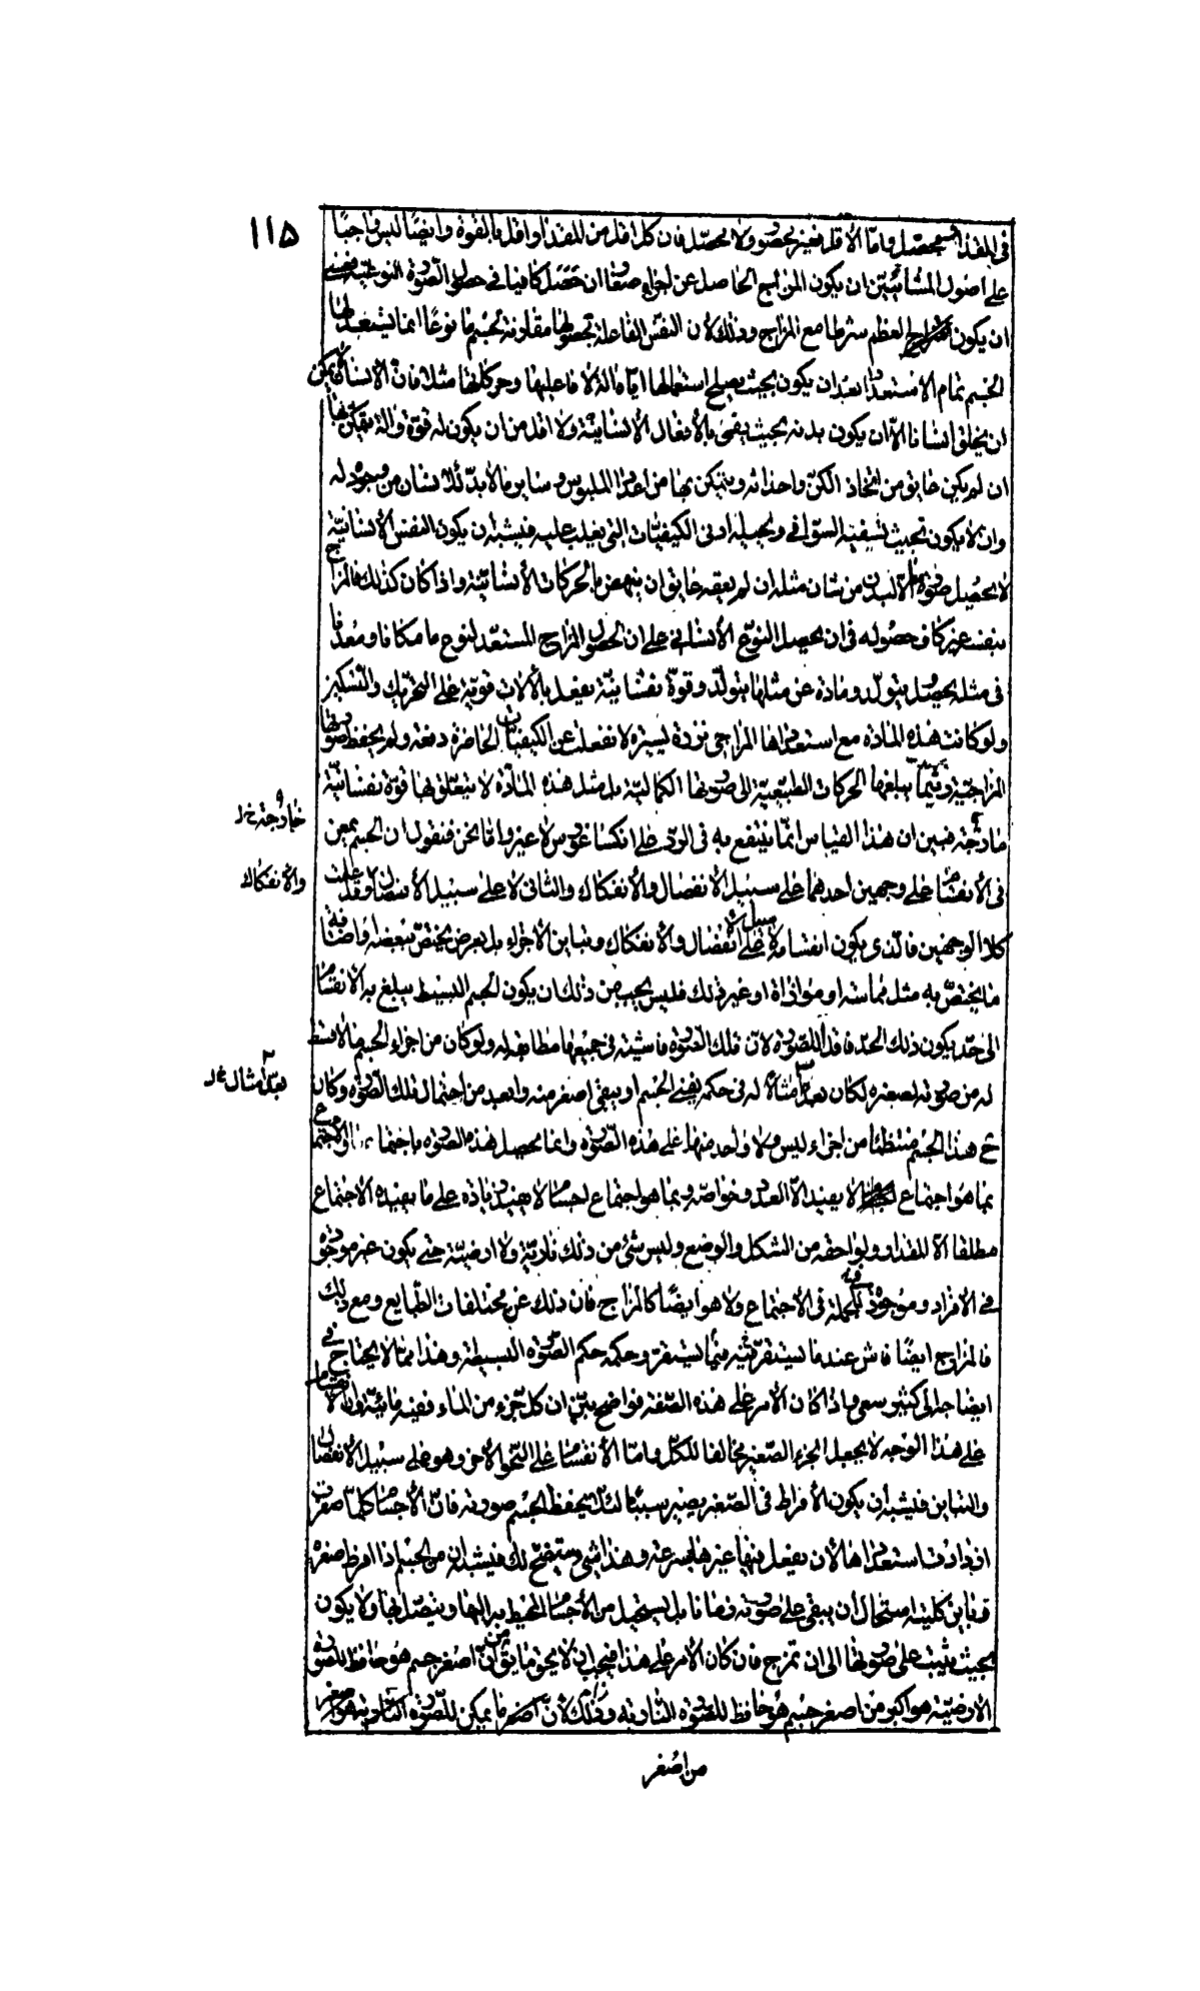 ١١۵
فى المقدار محصّل واما الاقل فغير محصور ولا محصّل فان كل اقل من المقدار اقل بالقوة وايضًا ليس واجبًا
على اصول المشائيين ان يكون المزاج الحاصل عن اجزاء صغار ان حصل كافيا فى حصول الصّورة النوعيّة
ان يكون العظم شرطا مع المزاج وذلك لان النفس الفاعلة بحصولها مقارنة لجسم ما نوعًا انما يستعد لها
الجسم تمام الاستعداد بعد ان يكون بحيث يصلح استعمالها اياه آلة لافاعليها وحركاتها مثلا فان الانسان لا يمكن
ان يخلق انسانا الا ان يكون بدنه بحيث يفى بالأفعال الأنسانية ولا اقل من ان يكون له قوّة وآلة يتمكّن بها
ان لم يكن عايق من اتخاذ الكنّ واحداثه ويتمكن بها من اعداد الملبوس وسايرما لابدّ للانسان من وجوده له
وان لا يكون بحيث تسفيه السوافى ويحيله ادنى الكيفيّات التى يغلب عليه فيشبه ان يكون النفس الأنسانيّة
لا يحصل صورة الا لبدن من شان مثله ان لم يعقه عايق ان ينهض بالحركات الأنسانيّة واذا كان كذلك فالمزاج
بنفسه غير كاف حصوله فى ان يحصل النوع الأنسانى على ان لحصول المزاج المستعد لنوع ما مكانا ومعدنا
فى مثله يحصل يتولّد ومادة عن مثلها يتولّد وقوة نفسانيّة يفعل بالآلات قوية على التحريك والتسكين
ولو كانت هذه المادة مع استعدادها المزاجى نزرة يسيرة لانفعلت عن الكيفيات الحاضرة دفعة ولم يحفظ صورتها
المزاجية ريثما يبلغها الحركات الطبيعية الى صورتها الكمالية بل مثل هذه المادّة لا يتعلّق بها قوة نفسانيّة
خارجة فبين ان هذا القياس انما ينتفع به فى الردّ على انكساغورس لا غير واما نحن فنقول ان الجسم يمعن
فى الأنقسام على وجهين احدهما على سبيل الأنفصال والأنفكاك والثانى لا على سبيل الأنفصال وقد علمت
كلا الوجهين فالذى يكون انقسامه لا على سبيل الأنفصال والأنفكاك وتباين الأجزاء بل بعرض يختصّ ببعضه او اضافة
ما يختصّ به مثل مماسة او موازاة او غير ذلك فليس يجب من ذلك ان يكون الجسم البسيط يبلغ به الانقسام
الى حدّ يكون ذلك الحدّ فاقدا للصّورة لانّ تلك الصّورة فاشية فى جميعها مطابقة له ولو كان من اجزاء الجسم ما لا قسط
له من صورته لصغره لكان بعد امثالا له فى حكمه يفنى الجسم او يبقى اصغر منه وابعد من احتمال تلك الصّورة وكان
ح هذا الجسم منتظما من اجزاء ليس ولا واحد منها على هذه الصّورة وانما يحصل هذه الصورة باجتماعها والاجتماع
بما هو اجتماع لا يفيد الا العدد وخواصّه وبما هو اجتماع اجسام لا يفيد زيادة على ما يفيده الاجتماع
مطلقا الا المقدار ولواحقه من الشكل والوضع وليس شئ من ذلك نارية ولا ارضية حتى يكون غير موجود
فى الافراد وموجودة للجملة فى الأجتماع ولا هو ايضًا كالمزاج فان ذلك عن مختلفات الطبايع ومع ذلك
فالمزاج ايضًا فاش عند ما يستقرّ فيه فيما يستقرّ وحكمه حكم الصّورة البسيطة وهذا ممّا لا يحتاج فى
ايضاحه الى كثير سعى واذا كان الأمر على هذه الصّفة فواضح بيّن ان كلّ جزء من الماء ففيه مائيّة وان الانقسام
على هذا الوجه لا يجعل الجزء الصّغير مخالفا للكلّ واما الأنقسام على النحو الآخر وهو على سبيل الأنفصال
والتباين فيشبه ان يكون الأفراط فى الصّغر يصير سببًا لئلا يحفظ الجسم صورته فانّ الأجسام كلما صغرت
ازدادت استعدادها لأن يفعل فيها غيرها بسرعة وهذا شئ سيتضح لك فيشبه ان من الجسم اذا افرط صغره
وباين كليته استحال ان يبقى على صورته زمانا بل يستحيل من الأجسام المحيط به اليها ويتصل بها ولا يكون
بحيث يثبت على صورتها الى ان تمزج فان كان الأمر على هذا فيجب ان لا يحق ما يق من انّ اصغر جسم هو حافظ للصّورة
الارضيّة هو اكبر من اصغر جسم هو حافظ للصّورة النارية وذلك لأنّ اصغر ما يمكن للصّورة الناريّة هو اصغر
خارجة خ ل
والانفكاك
بعد امثال خ ل
من اصغر